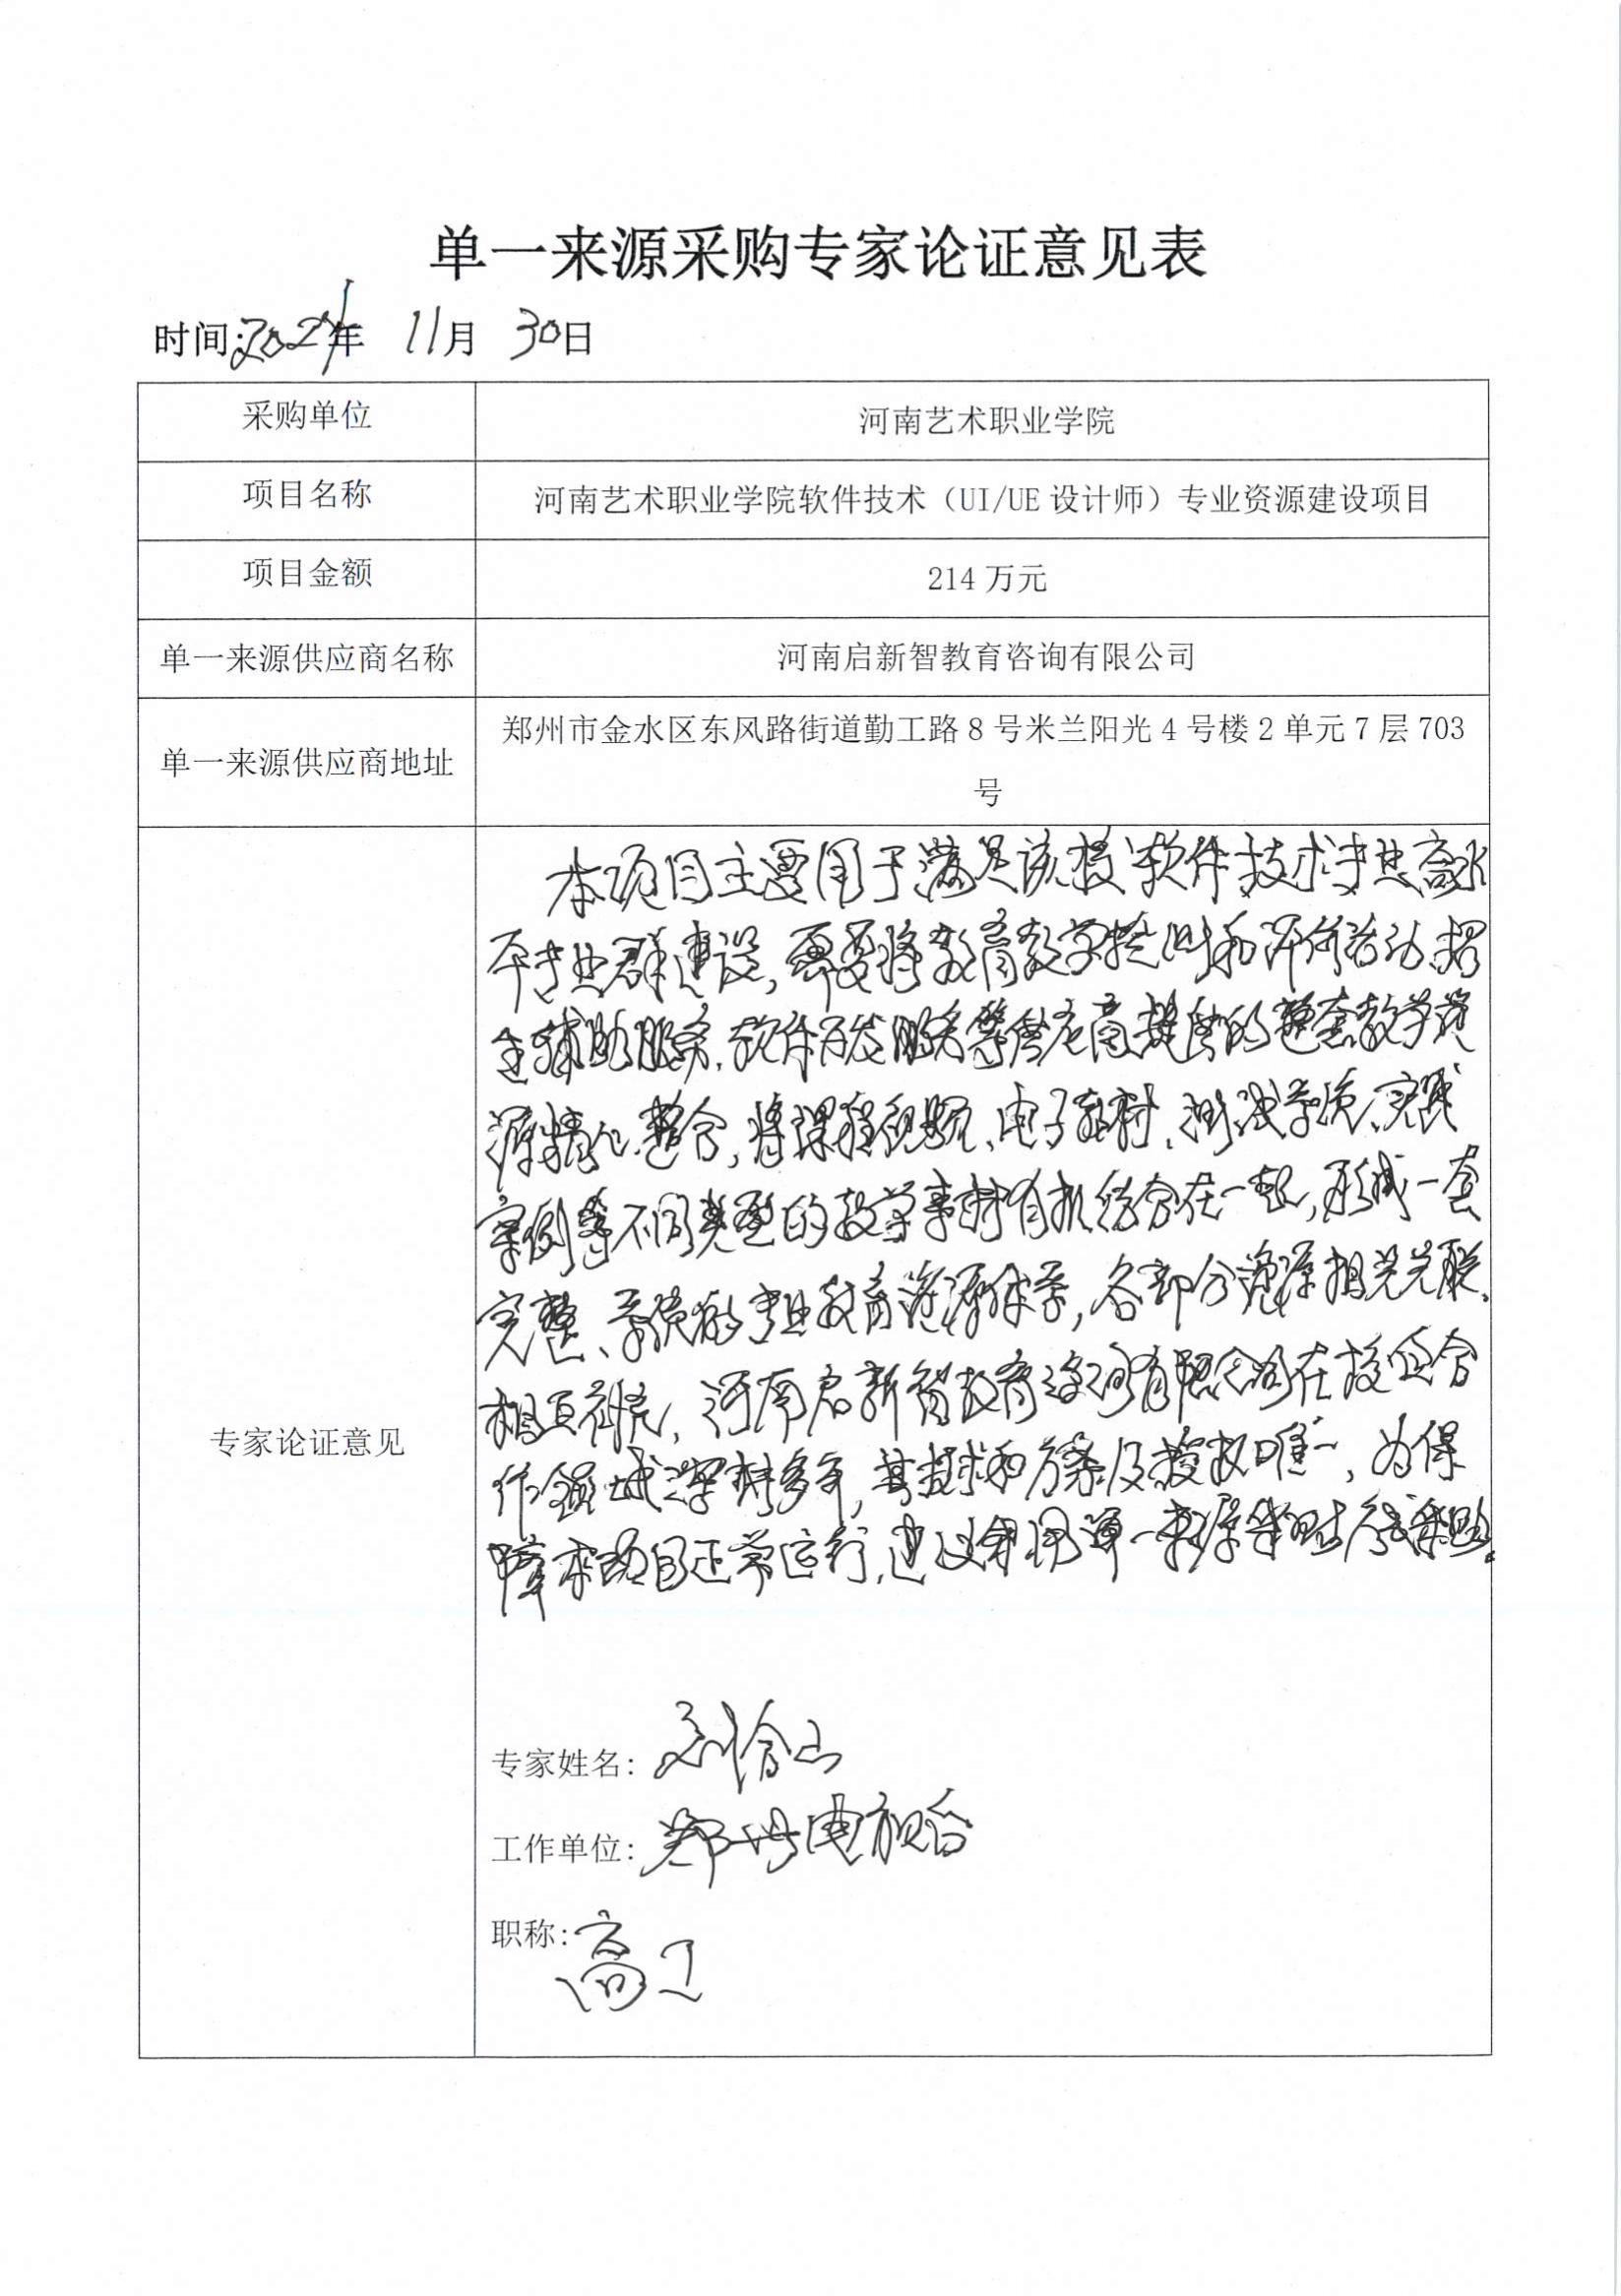 单一来源采购专家论证意见表
时间:2024年 11月 30日
采购单位
河南艺术职业学院
项目名称
河南艺术职业学院软件技术（UI/UE 设计师）专业资源建设项目
项目金额
214 万元
单一来源供应商名称
河南启新智教育咨询有限公司
单一来源供应商地址
郑州市金水区东风路街道勤工路 8 号米兰阳光 4 号楼 2 单元 7 层 703
号
专家论证意见
本项目主要用于满足该校软件技术专业高水
平专业群建设,需要将教育教学培训和评价活动、招
生辅助服务、软件开发服务等供应商提供的整套教学资
源精心整合,将课程视频、电子教材、测试系统、实践
案例等不同类型的教学素材有机结合在一起,形成一套
完整、系统的专业教育资源体系,各部分资源相关联、
相互补充,河南启新智教育咨询有限公司在校企合
作领域深耕多年,其技术和方案及授权唯一,为保
障本项目正常运行,建议采用单一来源采购方式采购。
专家姓名:
工作单位: 郑州电视台
职称: 高工